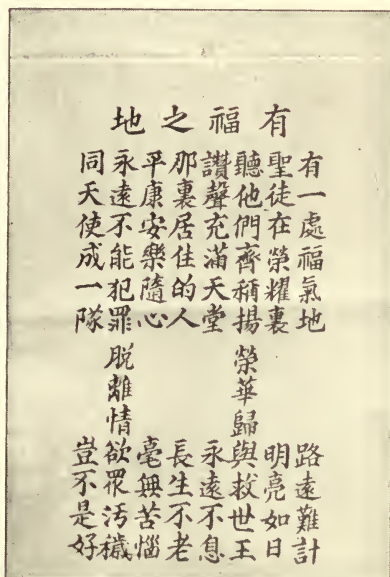 有福之地
有一處福氣地 路遠難計
聖徒在榮耀裏 明亮如日
聽他們齊稱揚 榮華歸與捄世王
讚聲充滿天堂 永遠不息
那裏居住的人 長生不老
平康安樂隨心 毫無苦惱
永遠不能犯罪 脫離情欲眾污穢
同天使成一隊 豈不是好